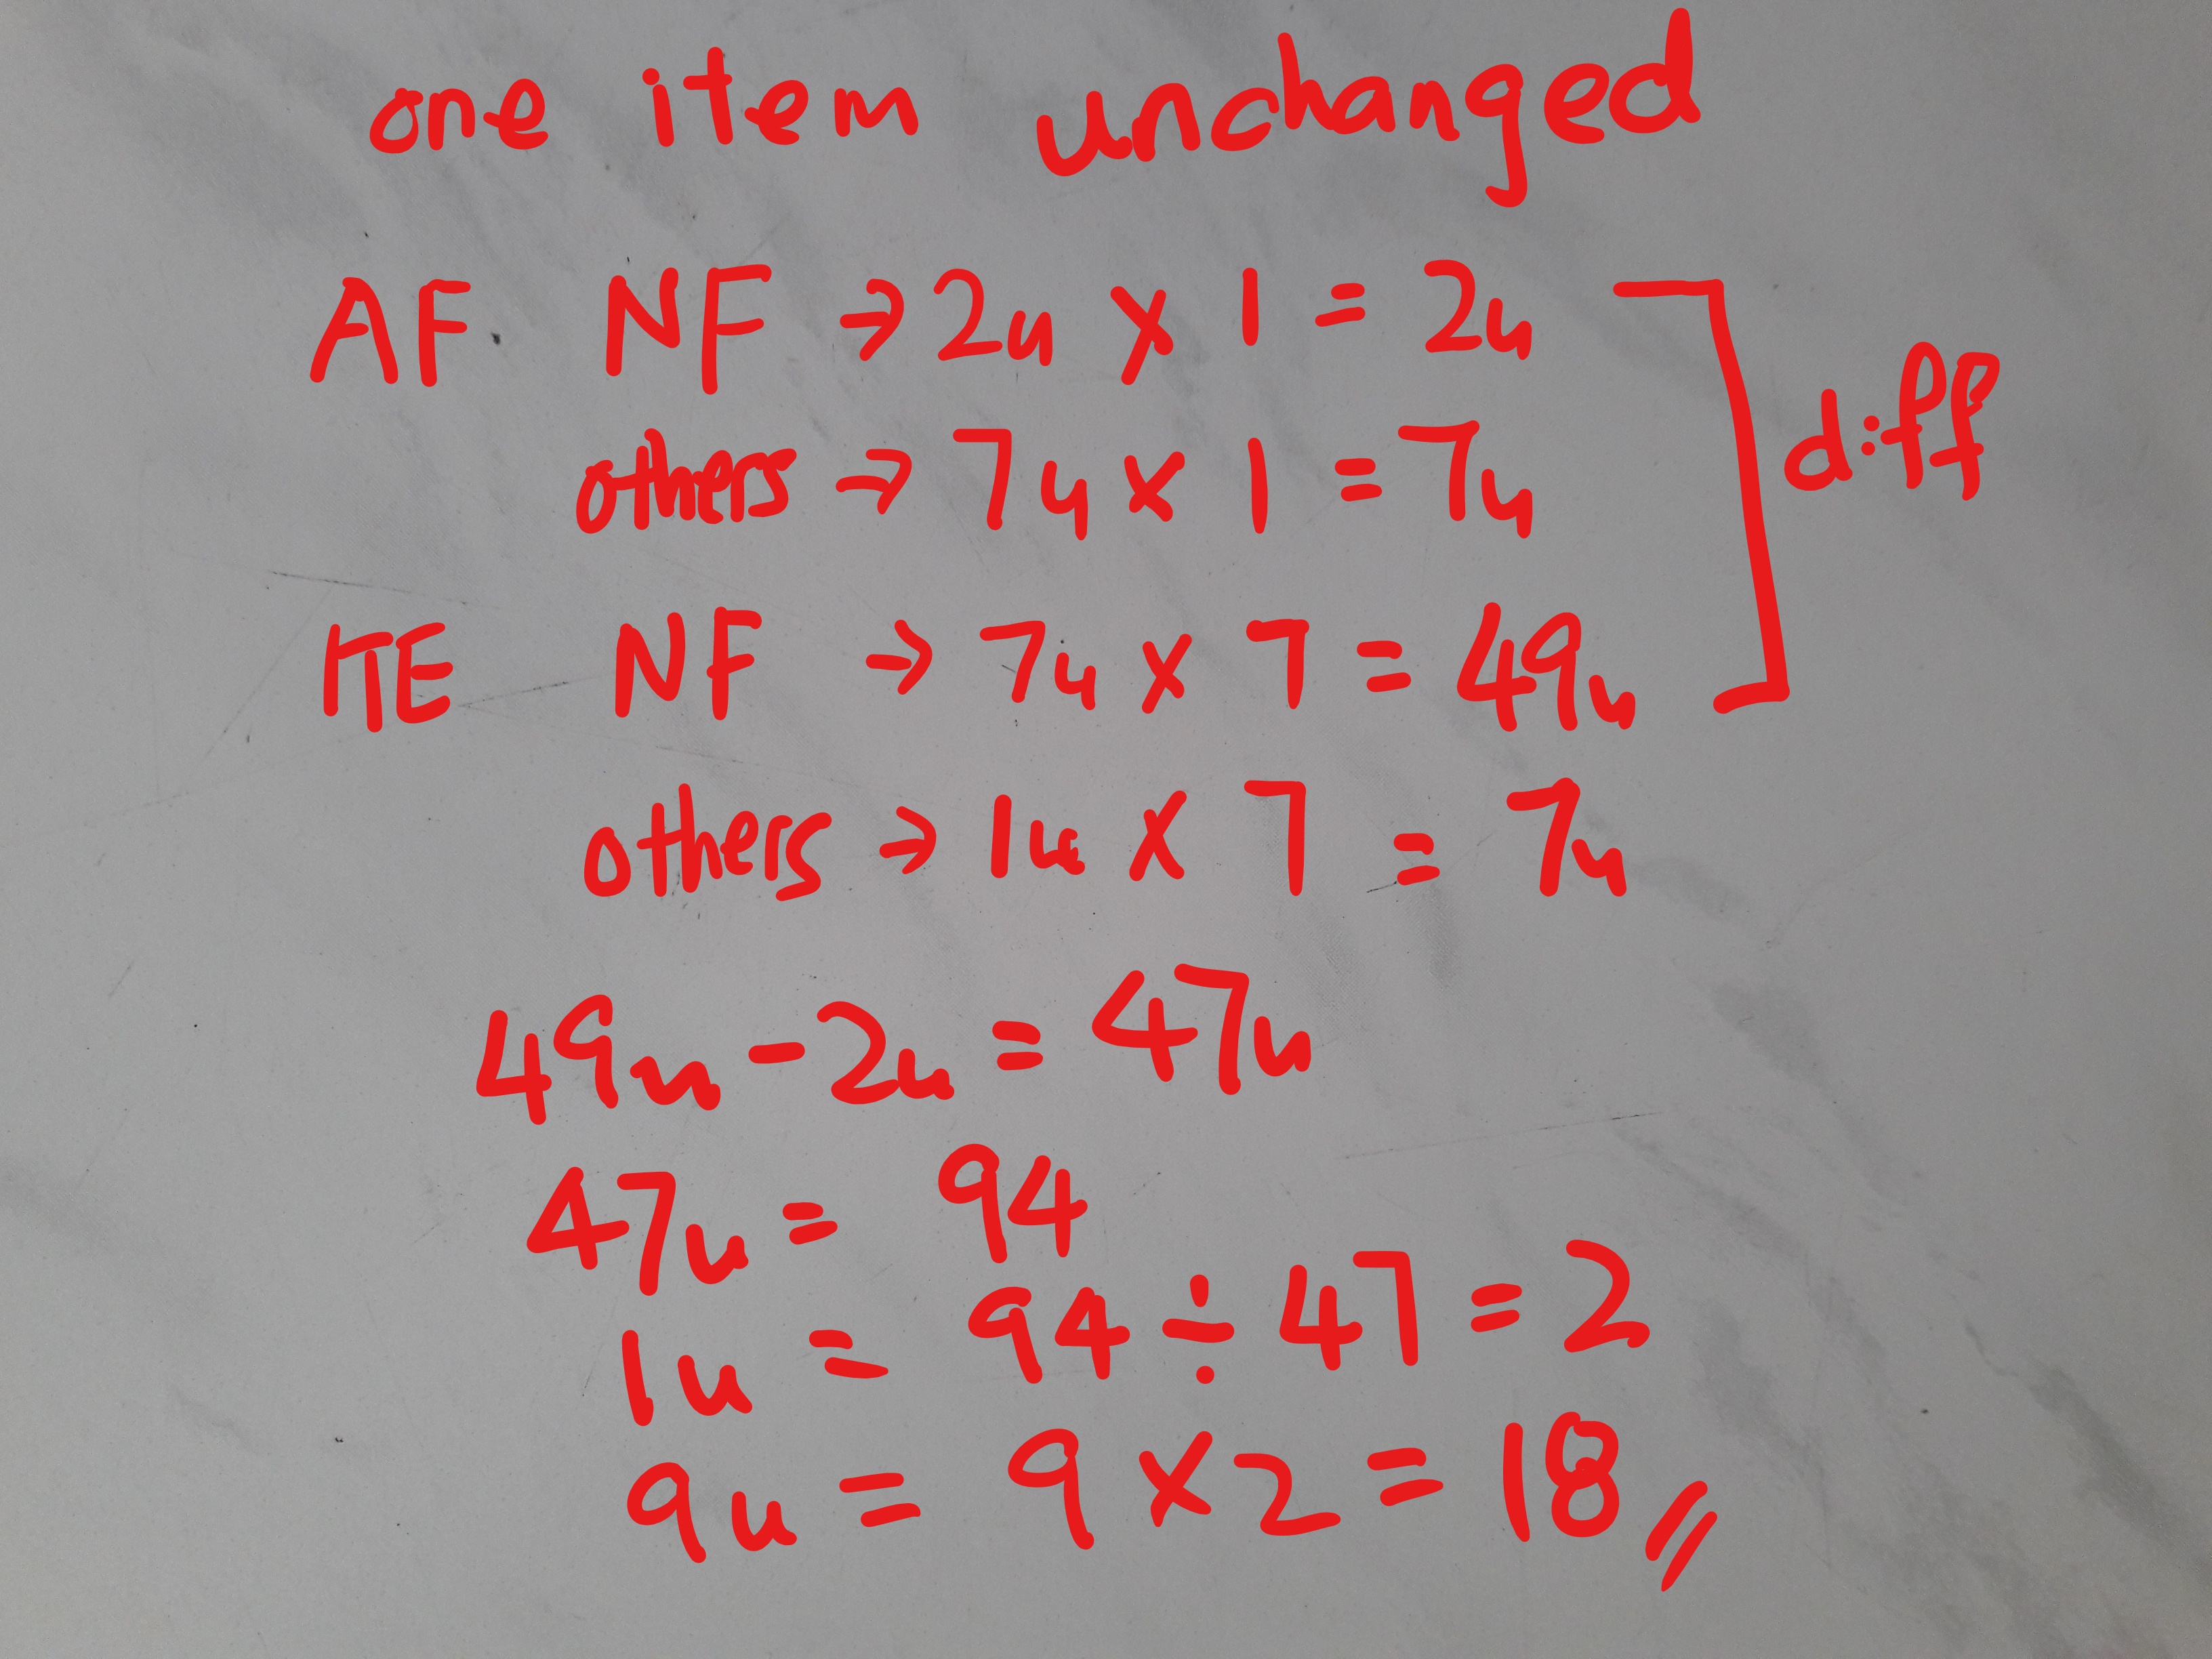 one item unchanged
AF NF → 2u × 1 = 2u
others → 7u × 1 = 7u
diff
NF → 7u × 7 = 49u
others → 1u × 7 = 7u
49u - 2u = 47u
47u = 94
1u = 94 ÷ 47 = 2
9u = 9 × 2 = 18